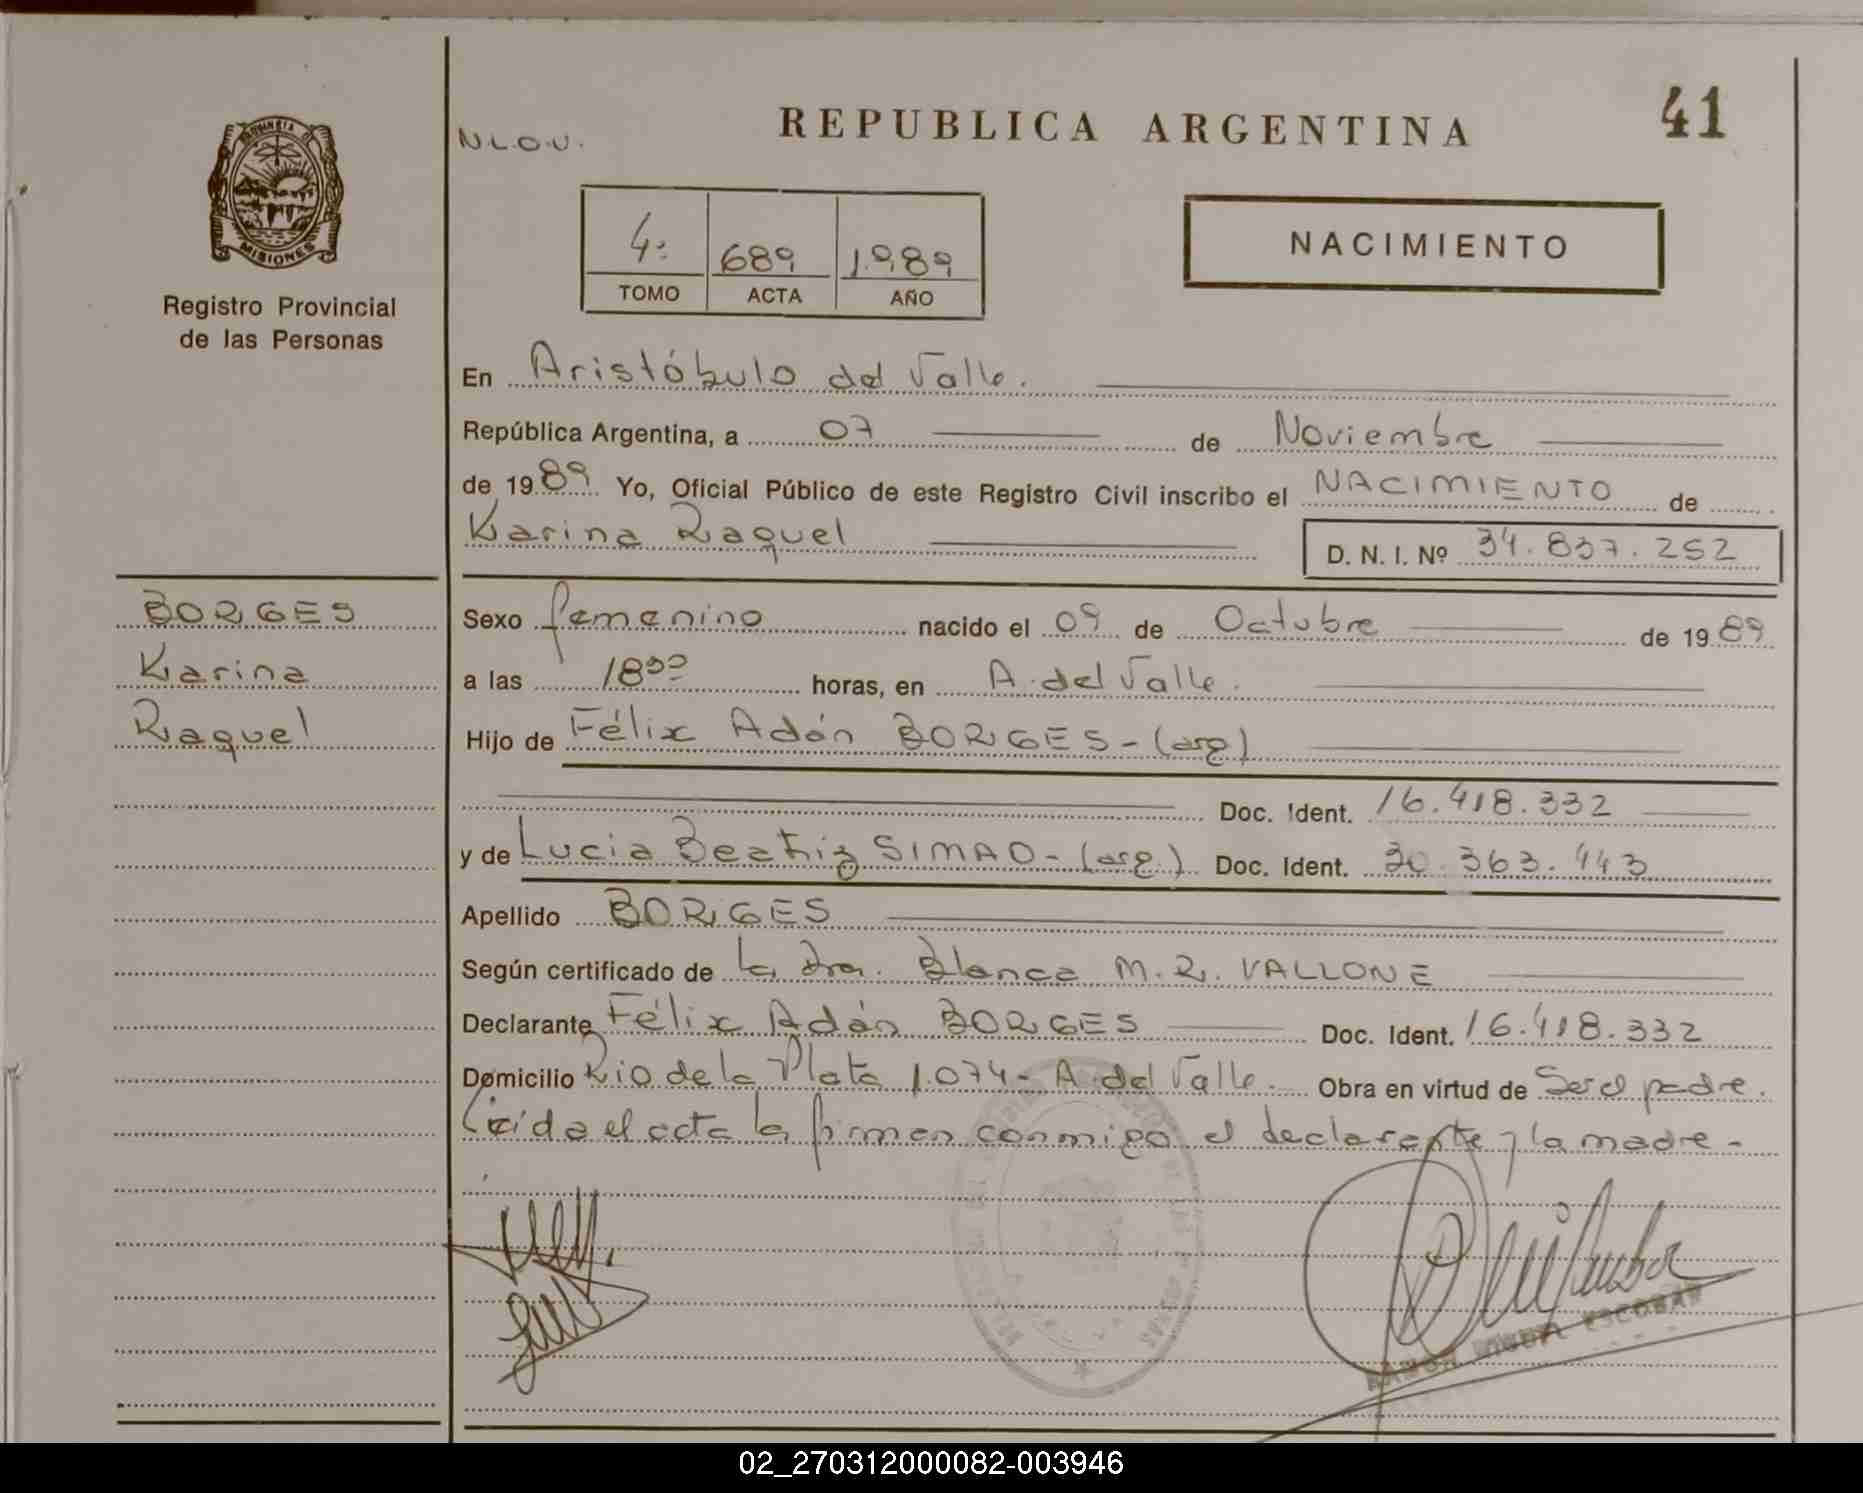 41
REPUBLICA ARGENTINA
N.L.O.U.
PROVINCIA DE
MISIONES
Registro Provincial
de las Personas
NACIMIENTO
4: 689 1.989
TOMO ACTA AÑO
En Aristóbulo del Valle.
República Argentina, a 07 de Noviembre
de 1989 Yo, Oficial Público de este Registro Civil inscribo el NACIMIENTO de
Karina Raquel D. N. I. Nº 34.837.252
BORGES
Karina
Raquel
Sexo femenino nacido el 09 de Octubre de 1989
a las 18³⁰ horas, en A. del Valle.
Hijo de Félix Adán BORGES - (arg)
Doc. Ident. 16.418.332
y de Lucia Beatriz SIMAO - (arg.) Doc. Ident. 20.363.443
Apellido BORGES
Según certificado de la Dra. Blanca M. R. VALLONE
Declarante Félix Adán BORGES Doc. Ident. 16.418.332
Domicilio Rio de la Plata 1.074 - A. del Valle. Obra en virtud de Ser el padre.
Leída el acta la firman conmigo el declarante y la madre -
RAMON MIGUEL ESCOBAR
02_270312000082-003946